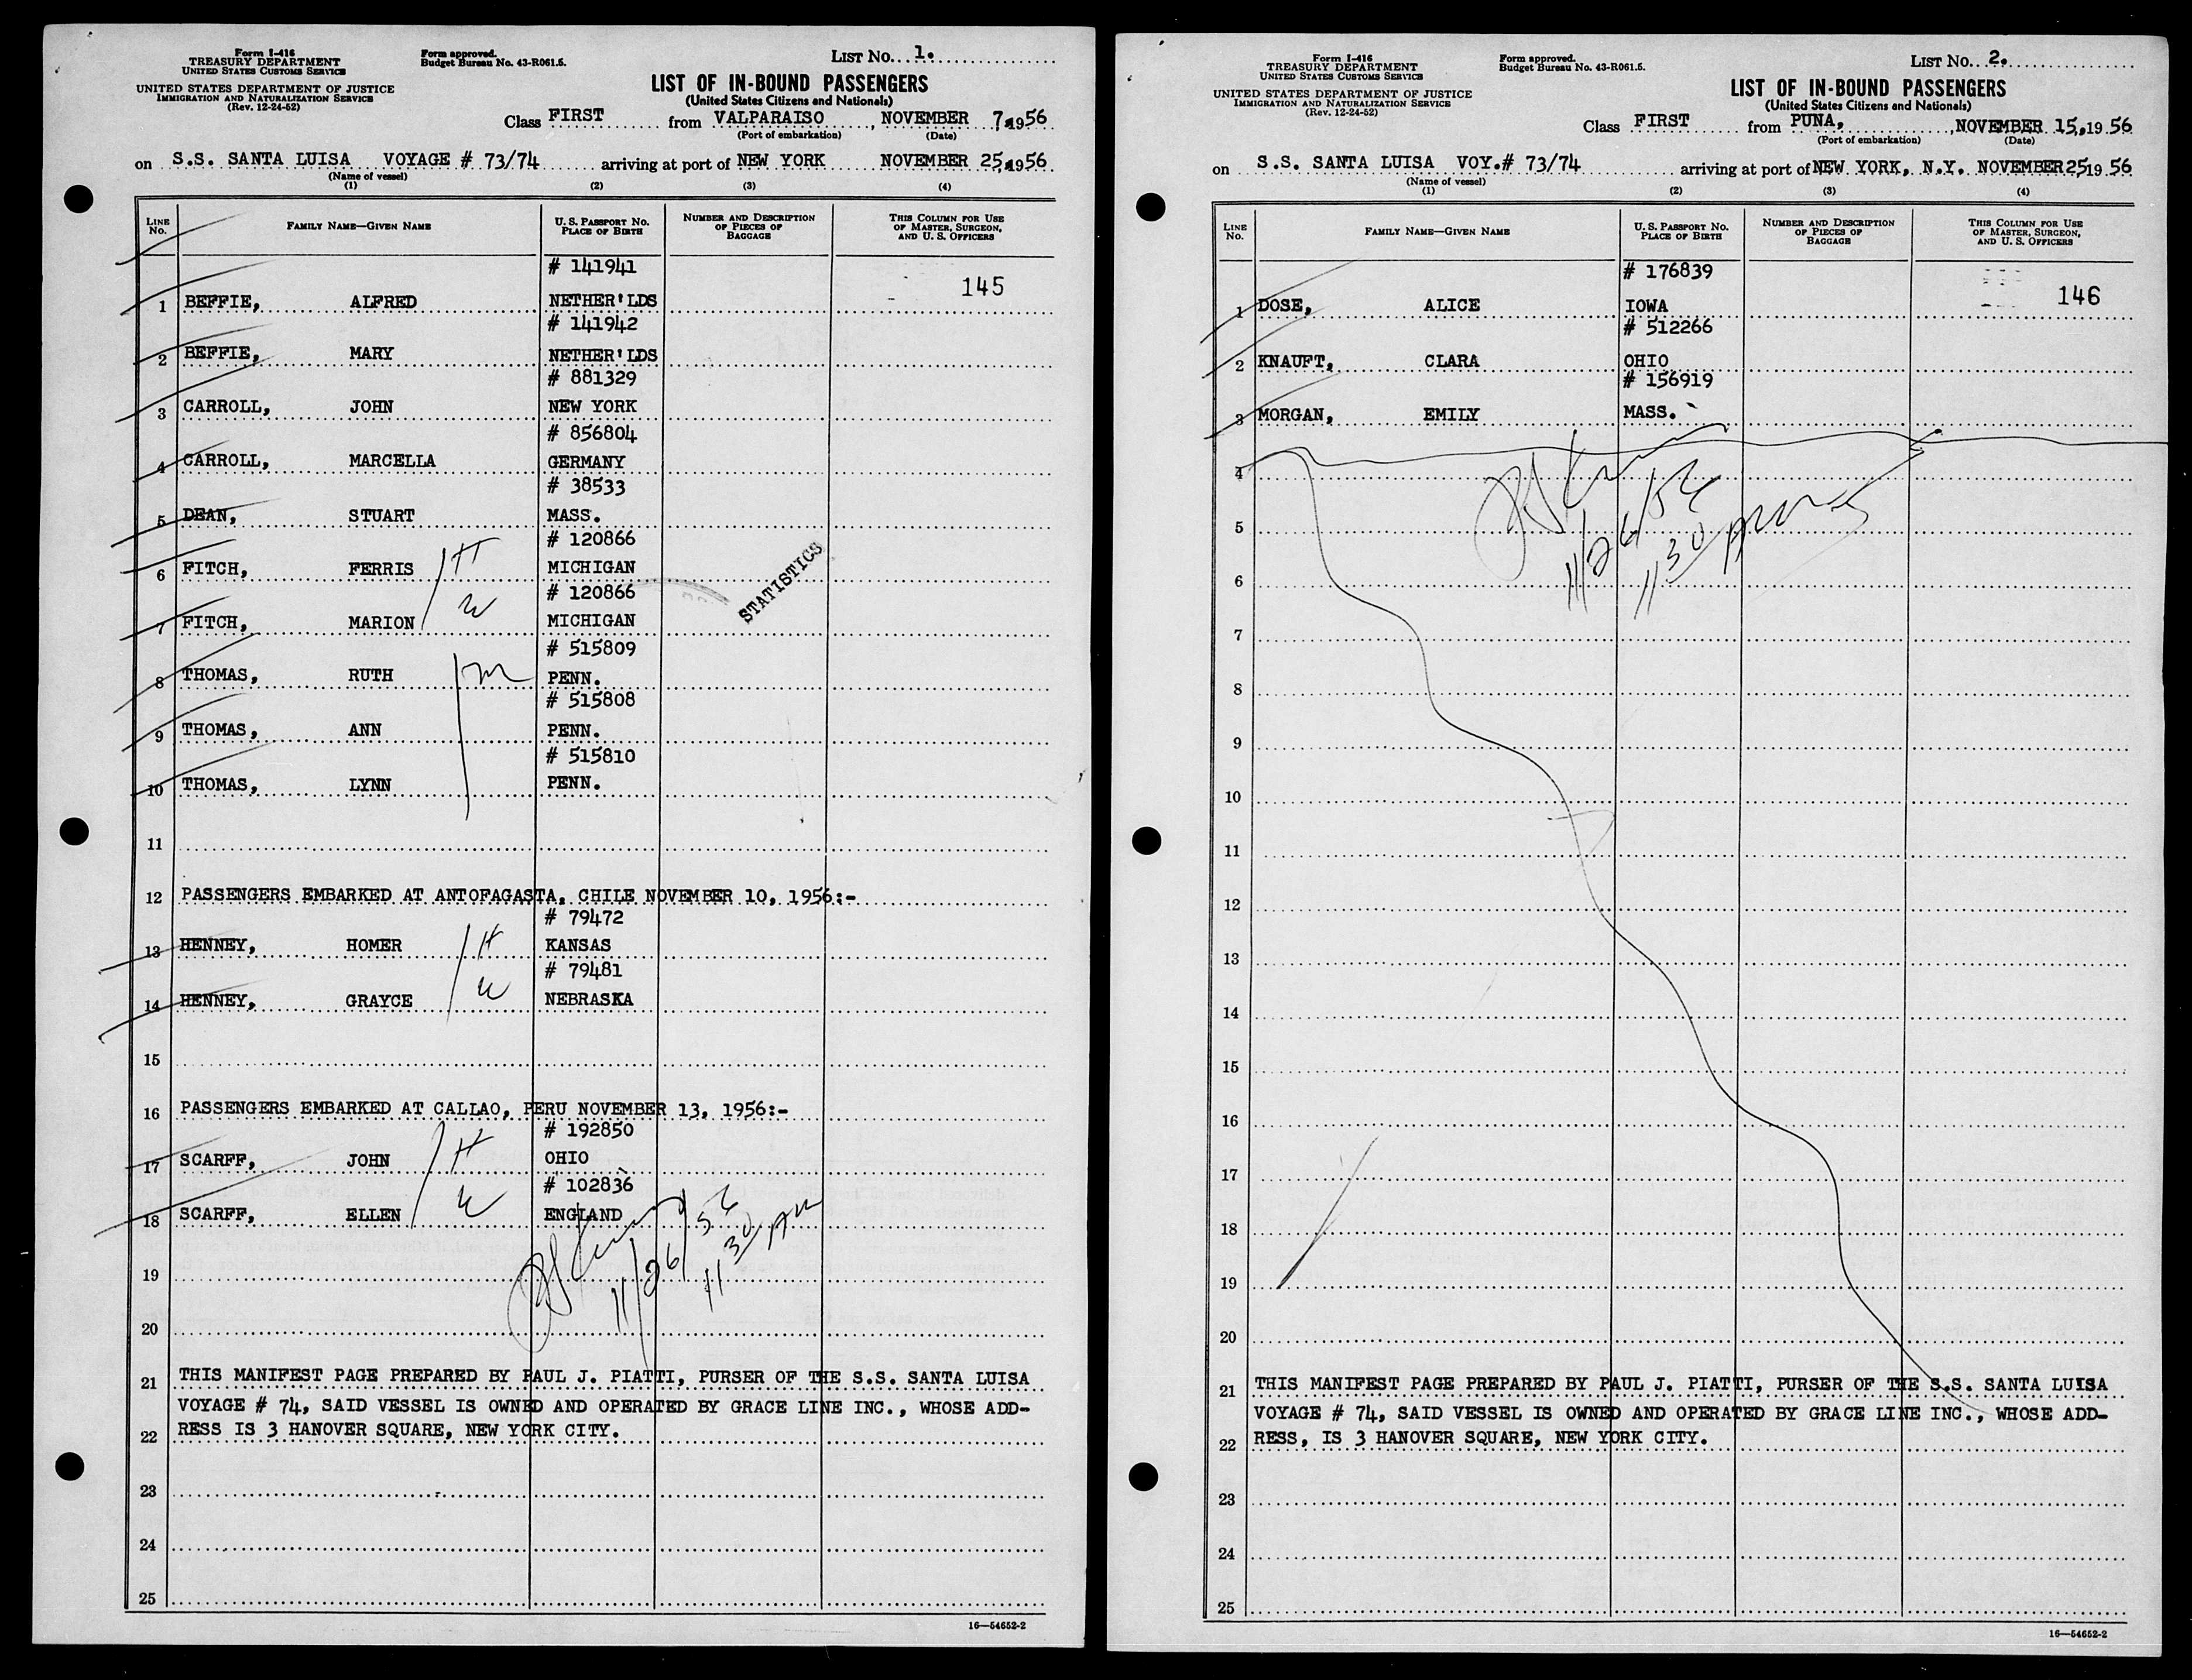 Form I-416
TREASURY DEPARTMENT
UNITED STATES CUSTOMS SERVICE
UNITED STATES DEPARTMENT OF JUSTICE
IMMIGRATION AND NATURALIZATION SERVICE
(Rev. 12-24-52)
Form approved.
Budget Bureau No. 43-R061.5.
LIST No. 1.
LIST OF IN-BOUND PASSENGERS
(United States Citizens and Nationals)
Class FIRST from VALPARAISO, NOVEMBER 7, 1956
(Port of embarkation) (Date)
on S.S. SANTA LUISA VOYAGE # 73/74 arriving at port of NEW YORK NOVEMBER 25, 1956.
(Name of vessel)
(1) (2) (3) (4)
LINE No. FAMILY NAME—GIVEN NAME U. S. PASSPORT No. PLACE OF BIRTH NUMBER AND DESCRIPTION OF PIECES OF BAGGAGE THIS COLUMN FOR USE OF MASTER, SURGEON, AND U. S. OFFICERS
# 141941
145
1 BEFFIE, ALFRED NETHER'LDS
# 141942
2 BEFFIE, MARY NETHER'LDS
# 881329
3 CARROLL, JOHN NEW YORK
# 856804
4 CARROLL, MARCELLA GERMANY
# 38533
5 DEAN, STUART MASS.
# 120866
6 FITCH, FERRIS H MICHIGAN
STATISTICS
# 120866
7 FITCH, MARION W MICHIGAN
# 515809
8 THOMAS, RUTH m PENN.
# 515808
9 THOMAS, ANN PENN.
# 515810
10 THOMAS, LYNN PENN.
11
12 PASSENGERS EMBARKED AT ANTOFAGASTA, CHILE NOVEMBER 10, 1956:-
# 79472
13 HENNEY, HOMER H KANSAS
# 79481
14 HENNEY, GRAYCE W NEBRASKA
15
16 PASSENGERS EMBARKED AT CALLAO, PERU NOVEMBER 13, 1956:-
# 192850
17 SCARFF, JOHN H OHIO
# 102836
18 SCARFF, ELLEN W ENGLAND
11/26/56
11 30 AM
19
20
21 THIS MANIFEST PAGE PREPARED BY PAUL J. PIATTI, PURSER OF THE S.S. SANTA LUISA
VOYAGE # 74, SAID VESSEL IS OWNED AND OPERATED BY GRACE LINE INC., WHOSE ADD-
22 RESS IS 3 HANOVER SQUARE, NEW YORK CITY.
23
24
25
16—54652-2
Form I-416
TREASURY DEPARTMENT
UNITED STATES CUSTOMS SERVICE
UNITED STATES DEPARTMENT OF JUSTICE
IMMIGRATION AND NATURALIZATION SERVICE
(Rev. 12-24-52)
Form approved.
Budget Bureau No. 43-R061.5.
LIST No. 2.
LIST OF IN-BOUND PASSENGERS
(United States Citizens and Nationals)
Class FIRST from PUNA, NOVEMBER 15, 1956
(Port of embarkation) (Date)
on S.S. SANTA LUISA VOY.# 73/74 arriving at port of NEW YORK, N.Y. NOVEMBER 25, 1956
(Name of vessel)
(1) (2) (3) (4)
LINE No. FAMILY NAME—GIVEN NAME U. S. PASSPORT No. PLACE OF BIRTH NUMBER AND DESCRIPTION OF PIECES OF BAGGAGE THIS COLUMN FOR USE OF MASTER, SURGEON, AND U. S. OFFICERS
# 176839
146
1 DOSE, ALICE IOWA
# 512266
2 KNAUFT, CLARA OHIO
# 156919
3 MORGAN, EMILY MASS.
4
11/26/56
5
11 30 AM
6
7
8
9
10
11
12
13
14
15
16
17
18
19
20
21 THIS MANIFEST PAGE PREPARED BY PAUL J. PIATTI, PURSER OF THE S.S. SANTA LUISA
VOYAGE # 74, SAID VESSEL IS OWNED AND OPERATED BY GRACE LINE INC., WHOSE ADD-
22 RESS, IS 3 HANOVER SQUARE, NEW YORK CITY.
23
24
25
16—54652-2